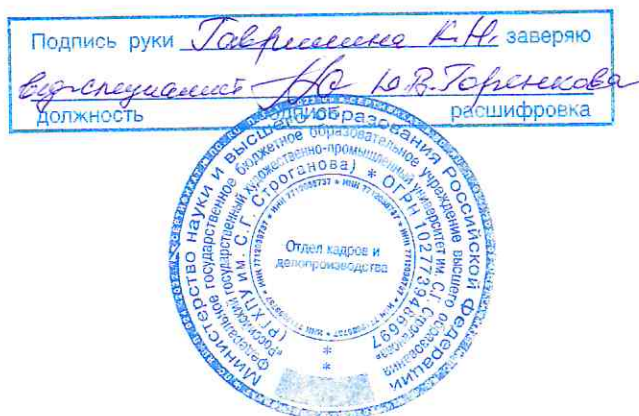 Подпись руки Гаврилина К.Н. заверяю
вед. специалист Ю.В. Горенкова
должность подпись расшифровка
Министерство науки и высшего образования Российской Федерации
Федеральное государственное бюджетное образовательное учреждение высшего образования
«Российский государственный художественно-промышленный университет им. С.Г. Строганова»
(РГХПУ им. С.Г. Строганова) * ОГРН 1027739486697
* ИНН 7712038737 * ИНН 7712038737 * ИНН 7712038737
Отдел кадров и
делопроизводства